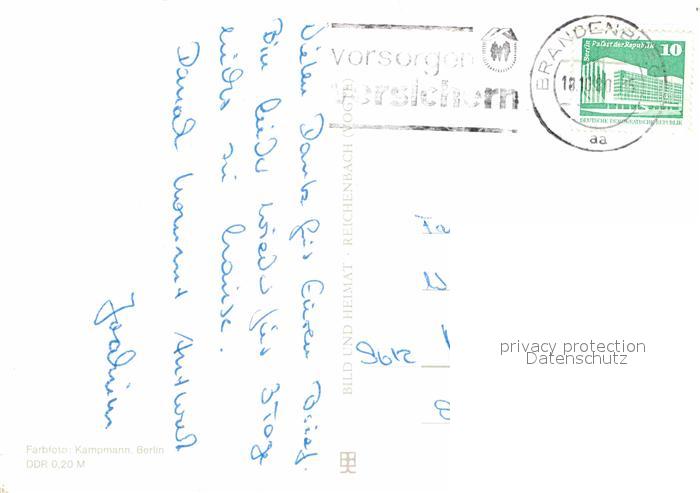 vorsorgen
versichern
BRANDENBURG
18.10.
aa
10
Berlin Palast der Republik
DEUTSCHE DEMOKRATISCHE REPUBLIK
Vielen Dank für Euren Brief.
Bin leider wieder für 3 Tage
zu hause.
Danach kommt Antwort
Joachim
BILD UND HEIMAT · REICHENBACH (VOGTL)
Fa
privacy protection
Datenschutz
Farbfoto: Kampmann, Berlin
DDR 0,20 M